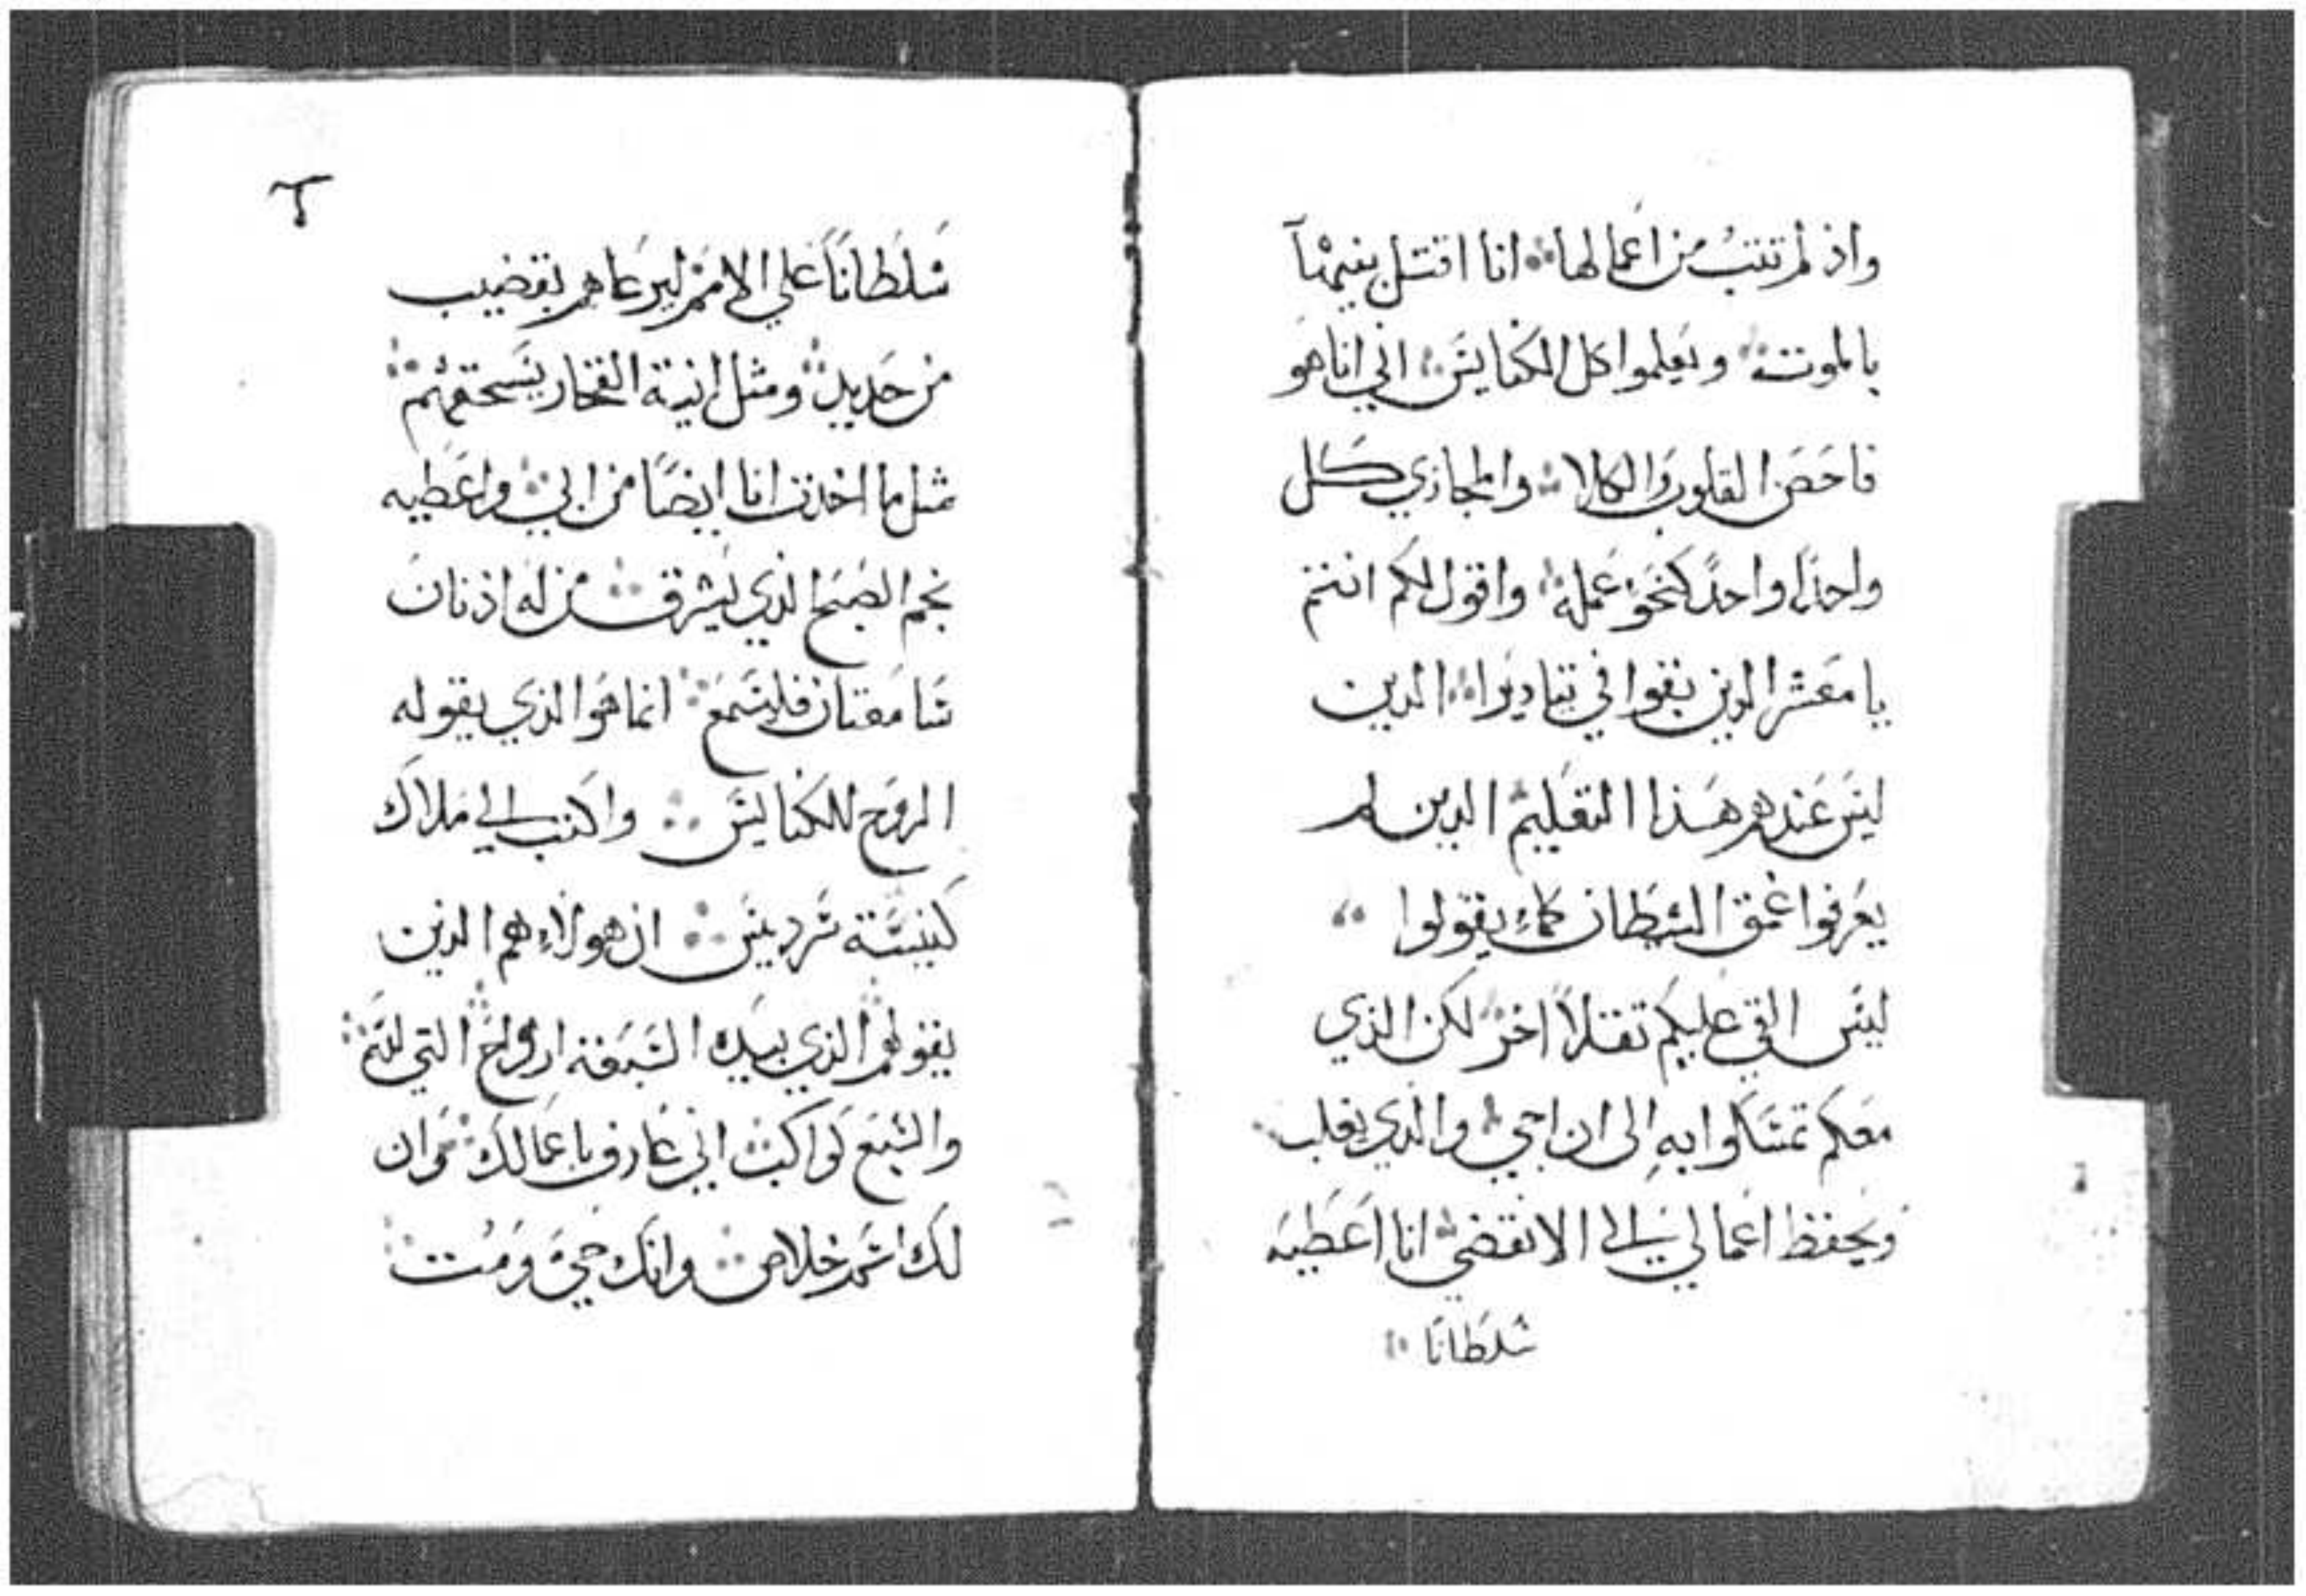 واذ لم تتب من اعمالها انا اقتل بنيها
بالموت ويعلموا كل الكنايس اني انا هو
فاحص القلوب والكلا والمجازي كل
واحدا واحدا كنحو عمله واقول لكم انتم
يا معشر الذين بقوا في تياديرا الذين
ليس عندهم هذا التعليم الذين لم
يعرفوا عمق الشيطان كما يقولوا
ليس القي عليكم ثقلا اخر لكن الذي
معكم تمسكوا به الى ان اجي والذي يغلب
ويحفظ اعمالي الي الانقضي انا اعطيه
سلطانا
٦
سلطانا علي الامم ليرعاهم بقضيب
من حديد ومثل انية الفخار يسحقهم
مثل ما اخذت انا ايضا من ابي واعطيه
نجم الصبح الذي يشرق من له اذنان
سامعتان فليسمع انما هو الذي يقوله
الروح للكنايس واكتب الي ملاك
كنيسة سرديس ان هولاء هم الذين
يقولهم الذي بيده السبعة ارواح التي لله
والسبع كواكب اني عارف باعمالك وان
لك اسم خلاص وانك حي ومت